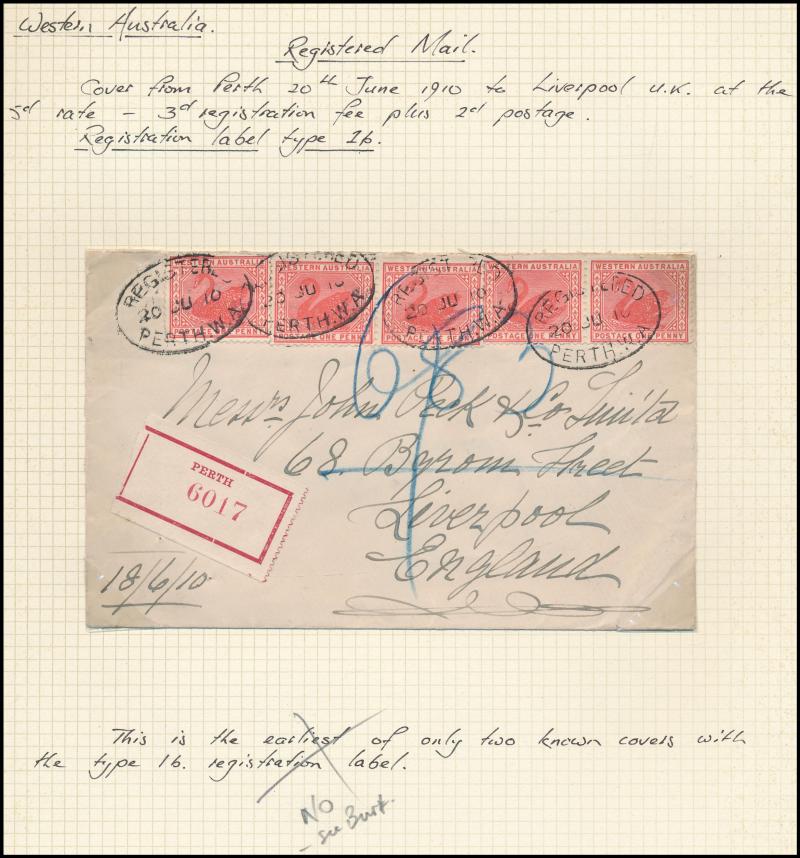 Western Australia.
Registered Mail.
Cover from Perth 20th June 1910 to Liverpool U.K. at the
5d rate – 3d registration fee plus 2d postage.
Registration label type 1b.
WESTERN AUSTRALIA WESTERN AUSTRALIA WESTERN AUSTRALIA WESTERN AUSTRALIA
POSTAGE ONE PENNY POSTAGE ONE PENNY POSTAGE ONE PENNY
REGISTERED 20 JU 10 PERTH.W.A.
REGISTERED 20 JU 10 PERTH.W.A.
REGISTERED 20 JU 10 PERTH.W.A.
REGISTERED 20 JU 10 PERTH.W.A.
Messrs John Peck & Co Limitd
68 Byrom Street
Liverpool
England
PERTH
6017
18/6/10
This is the earliest of only two known covers with
the type 1b. registration label.
NO